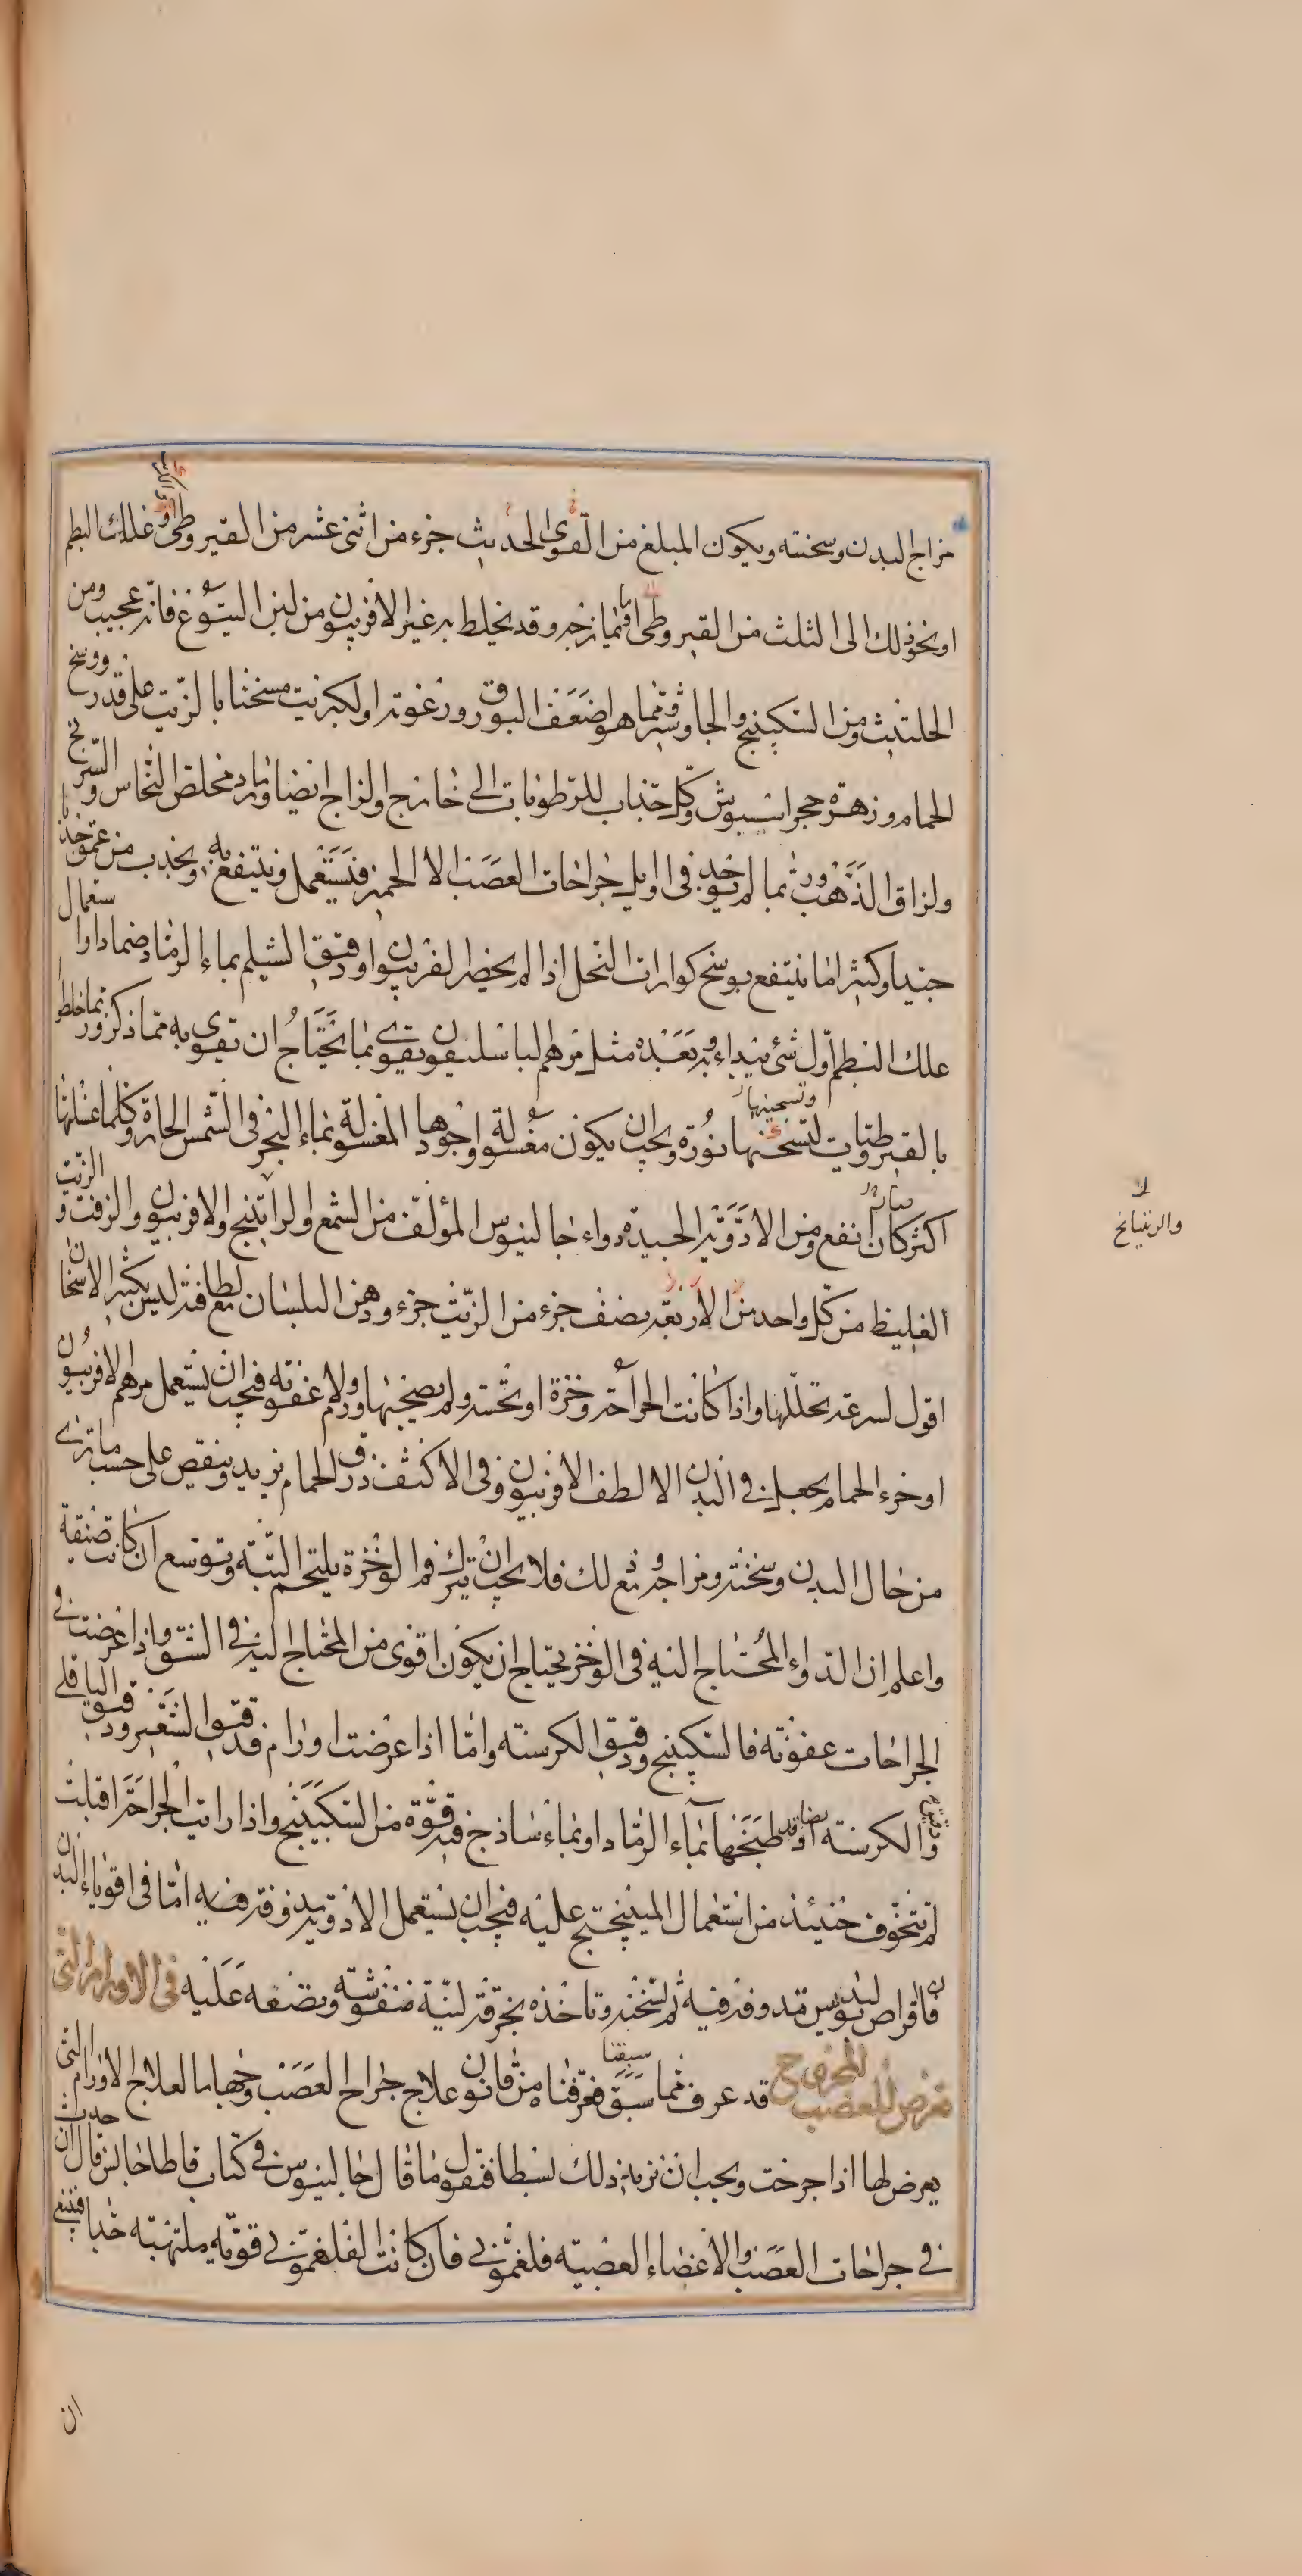 مزاج البدن وسخنته ويكون المبلغ من القوى الحديث جزء من اثنى عشر من القيروطى وعلك البطم
او نحو ذلك الى الثلث من القيروطى فيما زجه وقد يخلط به غير الافربيون من لبن اليتوع فانه عجيب ومن
الحلتيت ومن السكبينج والجاوشير ومما هو اضعف البورق ورغوته او لكبريت مسخنا بالزيت على قدر ووسخ
الحمام وزهرة حجر اسيوش وكل جذاب للرطوبات الى خارج والزاج ايضا ورماد مخلص النحاس والسرنج
ولزاق الذهب وربما لم يوجد فى اوايل جراحات العصب الا الخمير فيستعمل وينتفع به ويجذب من عمق جذبا
جيدا وكثيرا ما ينتفع بوسخ كوارات النحل اذا لم يحضر الفربيون او دقيق الشيلم بماء الرماد ضمادا واستعمال
علك البطم اول شئ يبداء به وبعده مثل مرهم الباسليقون يقوى بما يحتاج ان تقوى به مما ذكر وربما خلطوا
بالقيروطيات لتسخنها نورة ويجب ان يكون مغسولة واجودها المغسولة بماء البحر فى الشمس الحارة وكلما غسلتها
وتسخينها
اكثر كان انفع ومن الادوية الجيدة دواء جالينوس المؤلف من الشمع والراتينج والافربيون والزفت والزيت
الغليظ من كل واحد من الاربعة نصف جزء من الزيت جزء ودهن البلسان مع لطافته ليس بكثير الاسخان
اقول لسرعة تحللها واذا كانت الجراحة وخزة او نخسة ولم يصحبها ورم ولا عفونة فيجب ان يستعمل مرهم الافربيون
او خرء الحمام يجعل فى البدن الالطف الافربيون وفى الاكثف ذرق الحمام يزيد وينقص على حسب ما ترى
من حال البدن وسخنته ومزاجه ومع ذلك فلا يجب ان تترك فم الوخزة يلتحم البتة وتوسع ان كانت ضيقة
واعلم ان الدواء المحتاج اليه فى الوخز يحتاج ان يكون اقوى من المحتاج اليه فى الشق واذا عرضت فى
الجراحات عفونة فالسكبينج ودقيق الكرسنه واما اذا عرضت اورام فدقيق الشعير ودقيق الباقلى
ودقيق الكرسنه ايضا وقد طبخها بماء الرماد او بماء ساذج فيه قوة من السكبينج واذا رايت الجراحة اقبلت
لم تتخوف حينئذ من استعمال الميبختج عليه فيجب ان يستعمل الادوية مدوفة فيه اما فى اقوياء البدن
فاقراص بوليدس مدوفة فيه ثم تسخنه وتاخذه بخرقة لينة منفوشة وتضعه عليه فى الاورام التى
تعرض للعصب المجروح قد عرف مما سبق فعرفناه من قانون علاج جراح العصب وجها ما لعلاج الاورام التى
سبقنا
يعرض لها اذا جرحت ويجب ان نزيد ذلك بسطا فنقول ما قال جالينوس فى كتاب قاطاجانس قال ان حدث
فى جراحات العصب والاعضاء العصبيه فلغمونى فان كانت الفلغمونى قويه ملتهبة جدا فينبغى
ان
والريتيانج